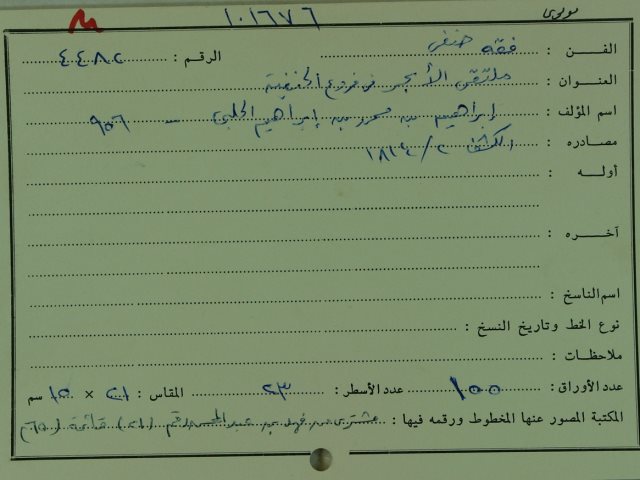 مولوي
١٠١٦٧٦
الفن : فقه حنفي الرقم : ٤٤٨٢
العنوان : ملتقى الأبحر في فروع الحنفية
اسم المؤلف : إبراهيم بن محمد بن إبراهيم الحلبي - ٩٥٦
مصادره : الكشف ٢ / ١٨١٤
أوله :
آخره :
اسم الناسخ :
نوع الخط وتاريخ النسخ :
ملاحظات :
عدد الأوراق : ١٥٥ عدد الأسطر : ٢٣ المقاس : ٢١ × ١٥ سم
المكتبة المصور عنها المخطوط ورقمه فيها : مشترى من فهد بن عبد المحسن رقم (٢١) قائمة (٦٥)